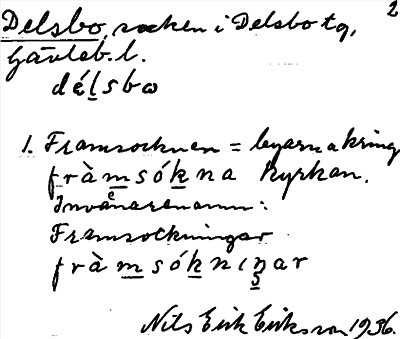 2
Delsbo, socken i Delsbo tg,
Gävleb. l.
délsbω
1. Framsocknen = byarna kring
fràmsókna kyrkan.
Invånarenamn:
Framsockningar
fràmsóknıŋar
Nils Erik Eriksson 1936.